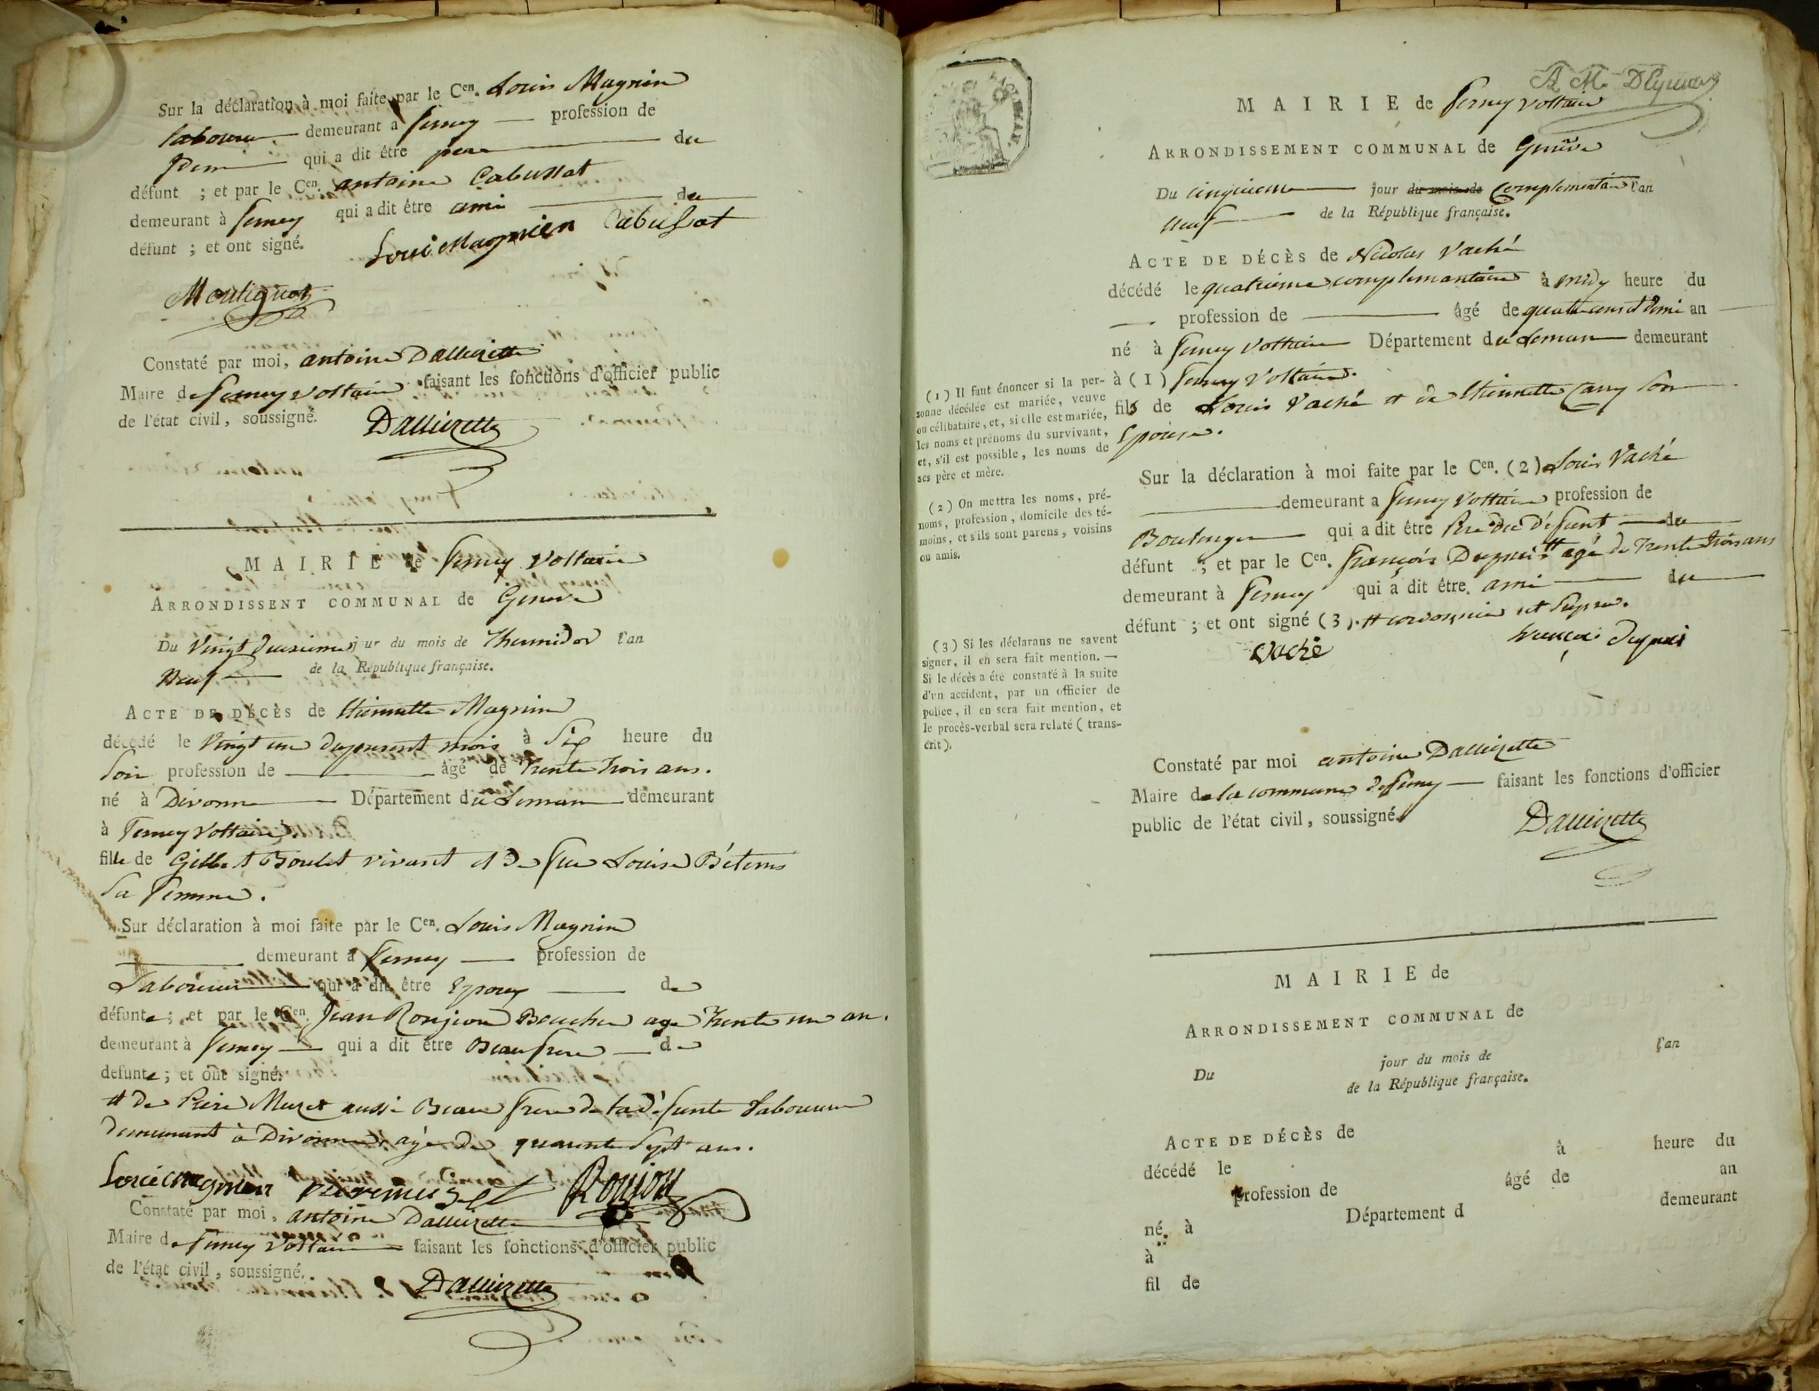 Sur la déclaration à moi faite par le Cen. Louis Magnin
laboureur demeurant a ferney profession de
qui a dit être pere du
défunt ; et par le Cen. antoine Cabussat
demeurant à ferney qui a dit étre ami du
défunt ; et ont signé. Cabussat
Constaté par moi, antoine Dallizette
Maire de ferney voltaire faisant les fonctions d'officier public
de l'état civil, soussigné. Dallizette
MAIRIE de ferney Voltaire
ARRONDISSENT COMMUNAL de Geneve
Du Vingt deuxieme jour du mois de Thermidor l'an
Neuf de la République française.
ACTE DE DÉCÈS de Etiennette Magnin
décédé le Vingt un du present mois à Six heure du
Soir profession de âgé de trente trois ans.
né à Divonne Département du Leman demeurant
à Ferney Voltaire
fille de Gilbert Boulet vivant et de feue Louise Bétems
Sa femme.
Sur déclaration à moi faite par le Cen. Louis Magnin
demeurant à Ferney profession de
Laboureur qui a dit être Epoux de
défunte ; et par le Cen. Jean Roujon Boucher age trente un an.
demeurant à ferney qui a dit être Beau frere de
defunte ; et ont signé.
# De Beau frere de la défunte Laboureur
demeurant à Divonne agé de quarante sept ans.
Roujou
Constaté par moi, antoine Dallizette
Maire de ferney Voltaire faisant les fonctions d'officier public
de l'état civil, soussigné. Dallizette
MAIRIE de ferney voltaire
ARRONDISSEMENT COMMUNAL de Genève
Du cinquieme jour du mois de Complementaire l'an
neuf de la République française.
ACTE DE DÉCÈS de Nicolas Vaché
décédé le quatrieme complementaire à midy heure du
profession de âgé de quatre ans et demi an
né à ferney Voltaire Département du Leman demeurant
à (1) ferney Voltaire.
fils de Louis Vaché et de Etiennette Carry Son
Epouse.
Sur la déclaration à moi faite par le Cen. (2) Louis Vaché
demeurant a ferney Voltaire profession de
Boulanger qui a dit être Pere du défunt du
défunt ; et par le Cen. françois Dupuis # agé de trente trois ans
demeurant à ferney qui a dit être ami du
défunt ; et ont signé (3). # cordonnier
vaché
Constaté par moi antoine Dallizette
Maire de la commune de ferney faisant les fonctions d'officier
public de l'état civil, soussigné. Dallizette
(1) Il faut énoncer si la per-
sonne décédée est mariée, veuve
ou célibataire, et, si elle est mariée,
les noms et prénoms du survivant,
et, s'il est possible, les noms de
ses père et mère.
(2) On mettra les noms, pré-
noms, profession, domicile des té-
moins, et s'ils sont parens, voisins
ou amis.
(3) Si les déclarans ne savent
signer, il en sera fait mention. —
Si le décès a été constaté à la suite
d'un accident, par un officier de
police, il en sera fait mention, et
le procès-verbal sera relaté (trans-
crit).
MAIRIE de
ARRONDISSEMENT COMMUNAL de
Du jour du mois de l'an
de la République française.
ACTE DE DÉCÈS de
décédé le à heure du
profession de âgé de an
né à Département d demeurant
à
fil de